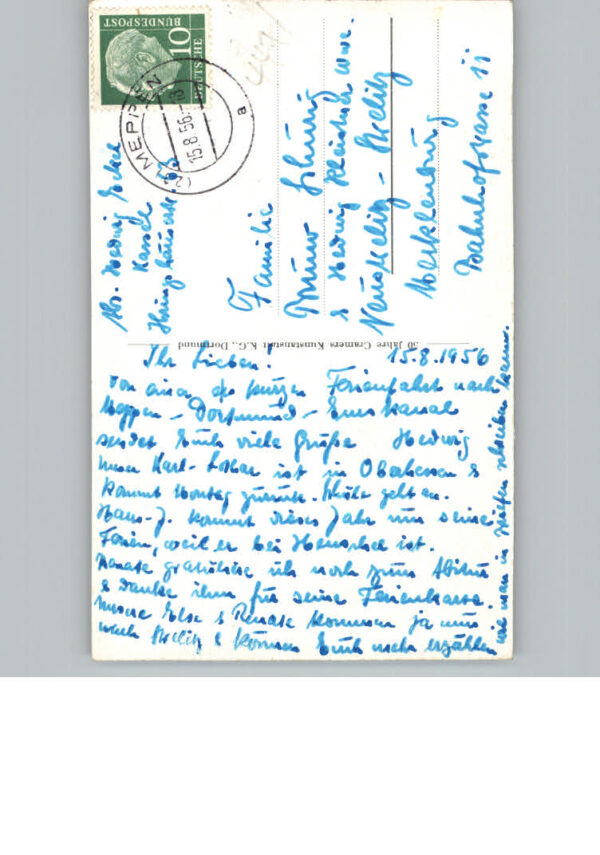 DEUTSCHE
BUNDESPOST
10
MEPPEN
15.8.56
a
Abs. Hedwig
Kassel
Familie
Bruno
& Hedwig Kleinscher Wwe.
Neustrelitz - Strelitz
Mecklenburg
Bahnhofstrasse 11
50 Jahre Cramers Kunstanstalt K.G., Dortmund
15.8.1956
Ihr Lieben!
Von einer der kurzen Ferienfahrt nach
Meppen - Dortmund - Emskanal
sendet Euch viele Grüße Hedwig
Unser Karl-Lothar ist in Oberhessen &
kommt Montag zurück. Schule geht an.
Hans-J. kommt dieses Jahr um seine
Ferien, weil er bei Henschel ist.
Renate gratuliere ich noch zum Abitur
& danke ihm für seine Ferienkarte.
Unsere Else & Renate kommen ja nun
nach Strelitz & können Euch mehr erzählen
wie man in Briefen schreiben kann.